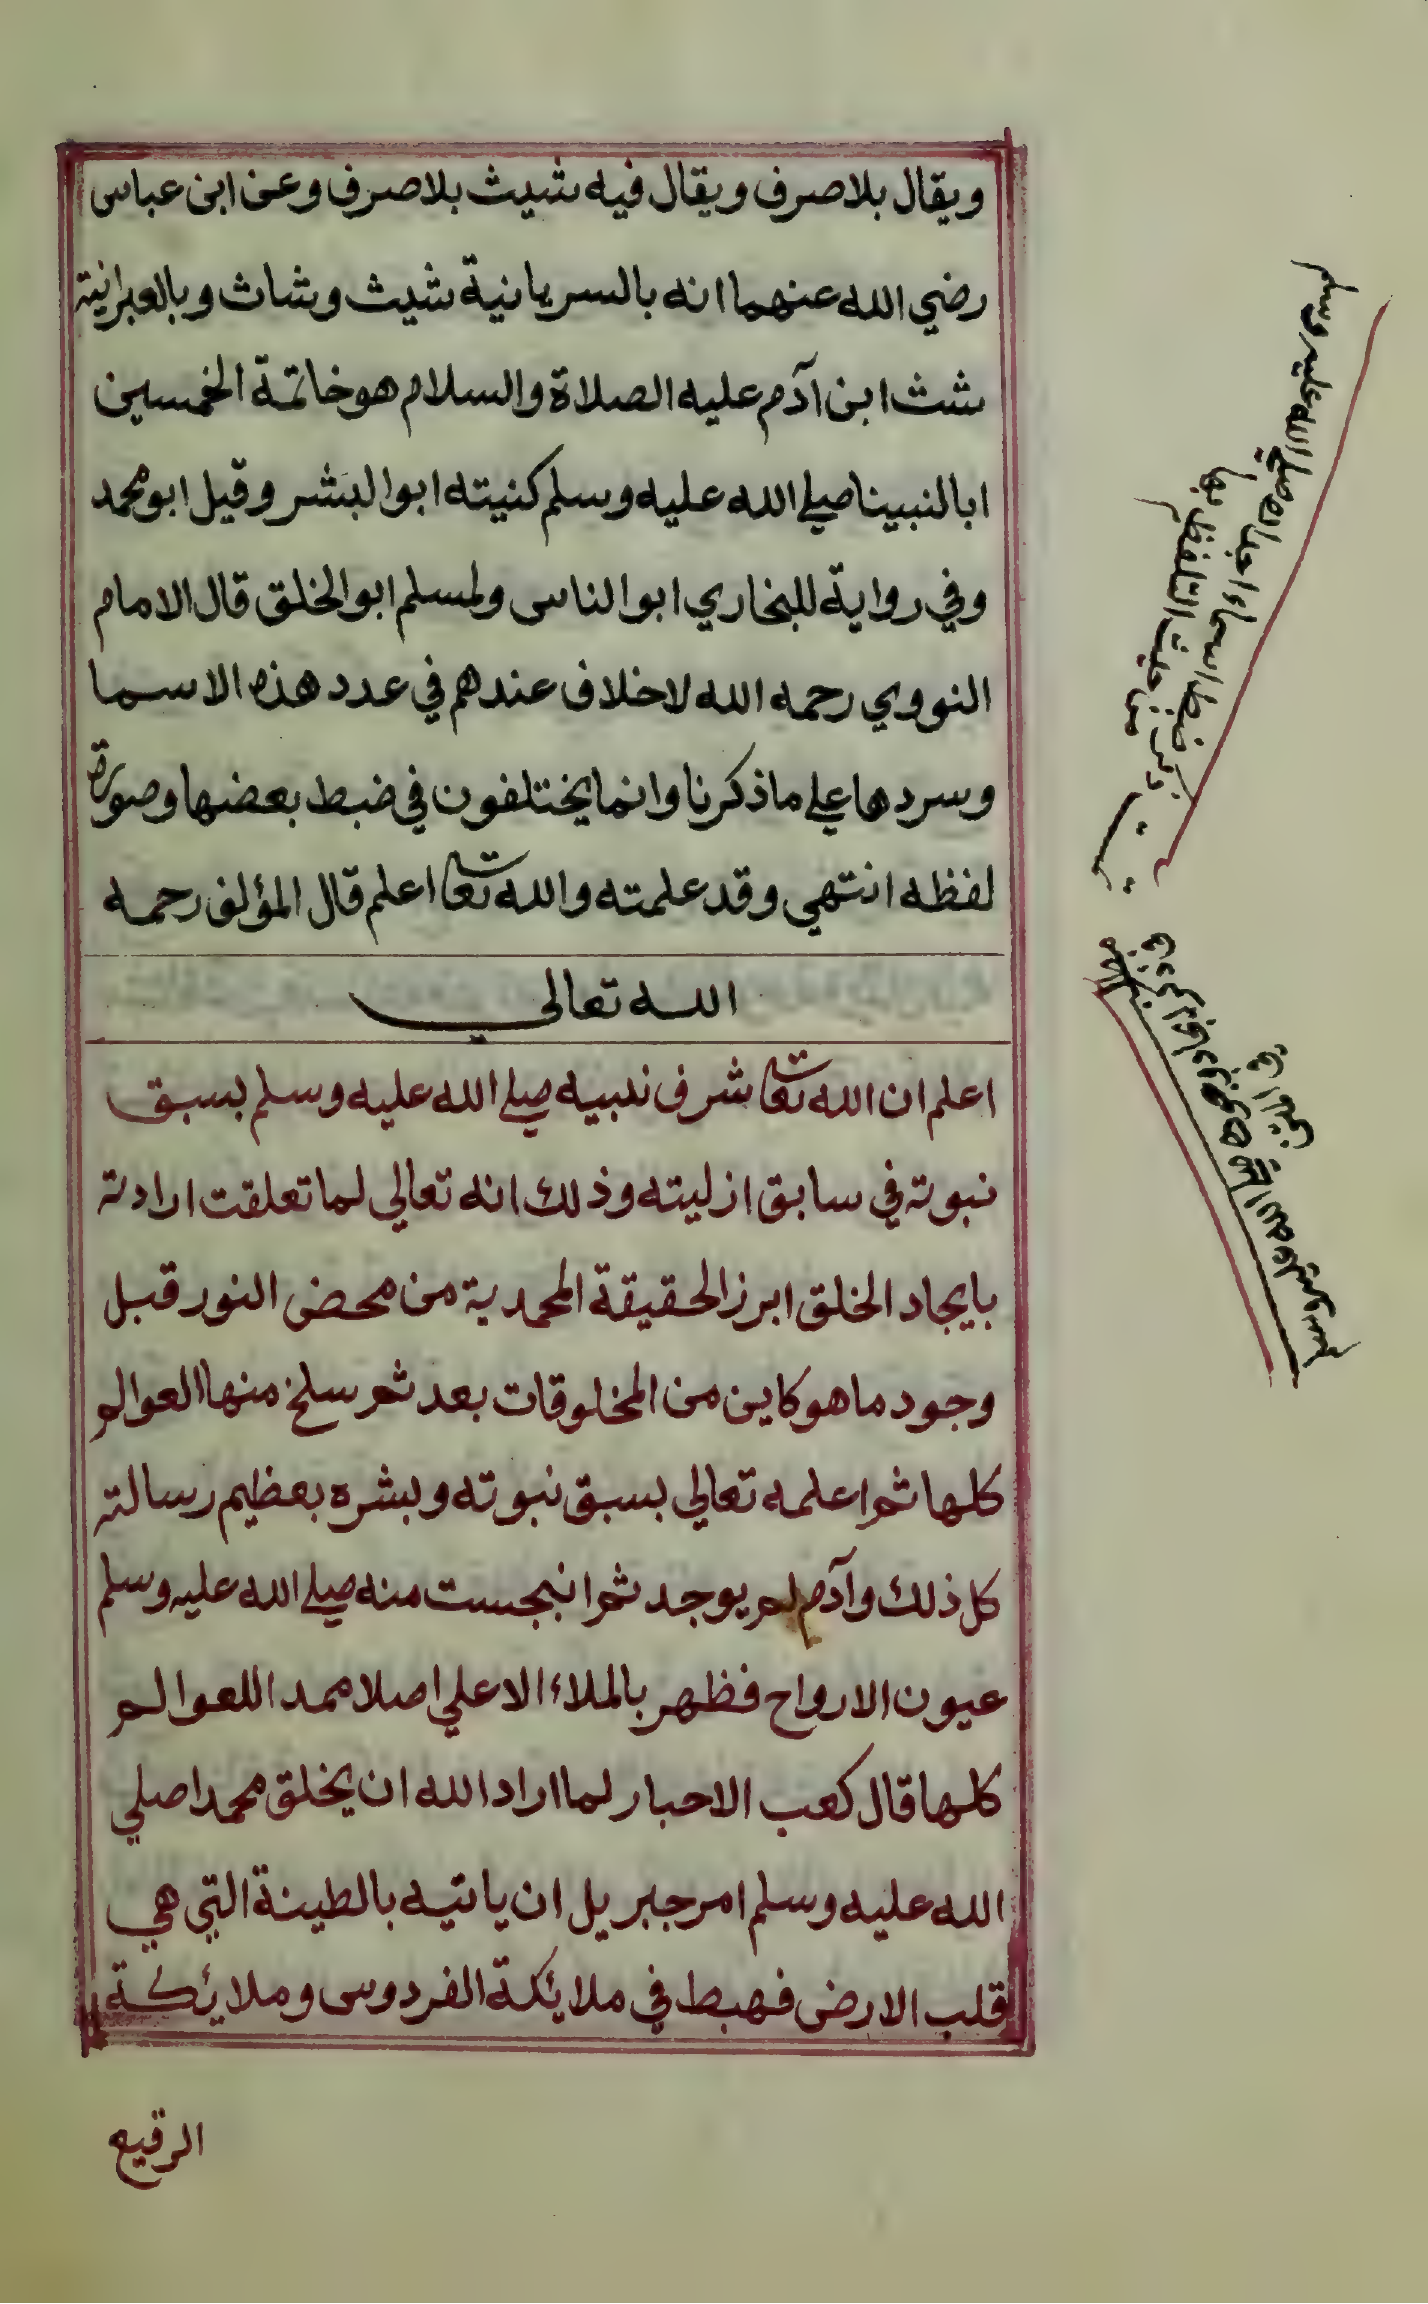 ويقال بلا صرف ويقال فيه شيث بلا صرف وعن ابن عباس
رضي الله عنهما انه بالسريانية شيث وشاث وبالعبرانية
شث ابن آدم عليه الصلاة والسلام هو خاتمة الخمسين
ابا لنبينا صلى الله عليه وسلم كنيته ابو البشر وقيل ابو محمد
وفي رواية للبخاري ابو الناس ولمسلم ابو الخلق قال الامام
النووي رحمه الله لا خلاف عندهم في عدد هذه الاسما
وسردها على ما ذكرنا وانما يختلفون في ضبط بعضها وصورة
لفظه انتهي وقد علمته والله تعا اعلم قال المؤلف رحمه
الله تعالي
اعلم ان الله تعا شرف نبيه صلى الله عليه وسلم بسبق
نبوته في سابق ازليته وذلك انه تعالي لما تعلقت ارادته
بايجاد الخلق ابرز الحقيقة المحمدية من محض النور قبل
وجود ما هو كاين من المخلوقات بعد ثم سلخ منها العوالم
كلها ثم اعلمه تعالي بسبق نبوته وبشره بعظيم رسالته
كل ذلك وآدم لم يوجد ثم انبجست منه صلى الله عليه وسلم
عيون الارواح فظهر بالملاء الاعلي اصلا ممدا للعوالم
كلها قال كعب الاحبار لما اراد الله ان يخلق محمدا صلي
الله عليه وسلم امر جبريل ان ياتيه بالطينة التي هي
قلب الارض فهبط في ملائكة الفردوس وملائكة
الرقيع
ضبط اسماء اجداده صلى الله عليه وسلم
من حيث التلفظ بها
تمت